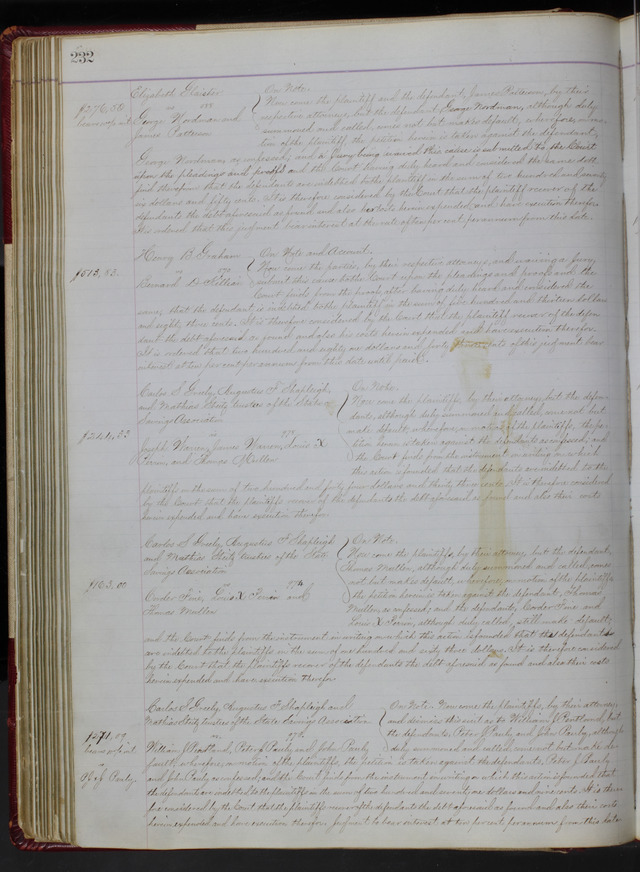 232
Elizabeth
On Note.
$276.50
vs
Now come the plaintiff and the defendant, James Patterson, by their
George Nordman and
respective attorneys, but the defendant George Nordman, although duly
James Patterson
summoned and called, comes not but makes default, wherefore, on motion
of the plaintiff, the petition herein is taken against the defendant,
George Nordman as confessed, and a jury being waived this cause is submitted to the Court
upon the pleadings and proofs and the Court having duly heard and considered the same doth
find therefrom that the defendants are indebted to the plaintiff in the sum of two hundred and seventy
six dollars and fifty cents. It is therefore considered by the Court that the plaintiff recover of the
defendants the debt aforesaid as found and also her costs herein expended and have execution therefor.
It is ordered that this judgment bear interest at the rate of ten per cent. per annum from this date.
Henry B. Graham
On Note and Account.
vs
Now come the parties, by their respective attorneys, and waiving a jury,
$513.83
Bernard D.
submit this cause to the Court upon the pleadings and proofs and the
Court finds from the proofs, after having duly heard and considered the
same, that the defendant is indebted to the plaintiff in the sum of five hundred and thirteen dollars
and eighty three cents. It is therefore considered by the Court that the plaintiff recover of the defen-
dant the debt aforesaid as found and also his costs herein expended and have execution therefor.
It is ordered that two hundred and eighty dollars and forty cents of this judgment bear
interest at ten per cent per annum from this date until paid.
Carlos S. Greeley, Augustus F. Shapleigh,
On Note.
and Mathias Steitz trustees of the State
Now come the plaintiffs, by their attorney, but the defen-
Savings Association
dants, although duly summoned and called, come not but
vs
make default, wherefore, on motion of the plaintiffs, the pe-
$244.33
Joseph Warren, James Warren, Louis X
tition herein is taken against the defendants as confessed, and
and Thomas Mullen
the Court finds from the instrument in writing on which
this action is founded that the defendants are indebted to the
plaintiffs in the sum of two hundred and forty four dollars and thirty three cents. It is therefore considered
by the Court that the plaintiffs recover of the defendants the debt aforesaid as found and also their costs
herein expended and have execution therefor.
Carlos S. Greeley Augustus F. Shapleigh
On Note.
and Mathias Steitz trustees of the State
Now come the plaintiffs, by their attorney, but the defendant,
Savings Association
Thomas Mullen, although duly summoned and called, comes
vs
not but makes default, wherefore, on motion of the plaintiffs,
$163.00
Louis X and
the petition herein is taken against the defendant, Thomas
Thomas Mullen
Mullen, as confessed; and the defendants, and
Louis X although duly called, still make default;
and the Court finds from the instrument in writing on which this action is founded that the defendants
are indebted to the plaintiffs in the sum of one hundred and sixty three dollars. It is therefore considered
by the Court that the plaintiffs recover of the defendants the debt aforesaid as found and also their costs
herein expended and have execution therefor.
Carlos S. Greeley Augustus F. Shapleigh and
On Note. Now come the plaintiffs, by their attorney,
Mathias Steitz trustees of the State Savings Association
and dismiss this suit as to William J. but
vs
the defendants, Peter J. Pauly and John Pauly, although
$271.09
William J. Peter J. Pauly and John Pauly
duly summoned and called, come not but make de-
fault, wherefore, on motion of the plaintiffs, the petition is taken against the defendants, Peter J. Pauly
P. J. Pauly.
and John Pauly as confessed, and the Court finds from the instrument in writing on which this action is founded that
the defendants are indebted to the plaintiffs in the sum of two hundred and seventy one dollars and nine cents. It is there-
fore considered by the Court that the plaintiffs recover of the defendants the debt aforesaid as found and also their costs
herein expended and have execution therefor. Judgment to bear interest at ten per cent. per annum from this date.